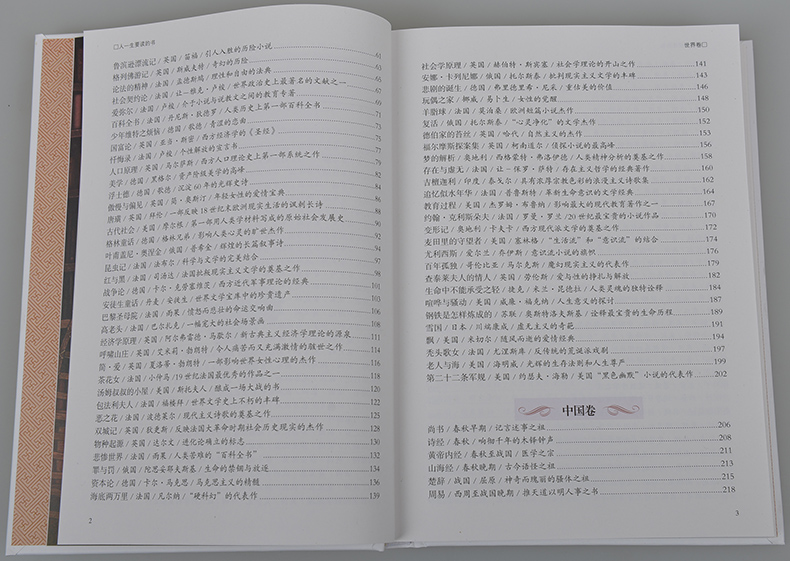 人一生要读的书
鲁滨逊漂流记/英国/笛福/引人入胜的历险小说 61
格列佛游记/英国/斯威夫特/奇幻的历险 63
论法的精神/法国/孟德斯鸠/理性和自由的法典 65
社会契约论/法国/让—雅克·卢梭/世界政治史上最著名的文献之一
爱弥尔/法国/卢梭/介于小说与说教文之间的教育专著
百科全书/法国/丹尼斯·狄德罗/人类历史上第一部百科全书
少年维特之烦恼/德国/歌德/青涩的恋曲
国富论/英国/亚当·斯密/西方经济学的《圣经》
忏悔录/法国/卢梭/个性解放的宣言书
人口原理/英国/马尔萨斯/西方人口理论史上第一部系统之作
美学/德国/黑格尔/资产阶级美学的高峰
浮士德/德国/歌德/沉淀60年的光辉史诗
傲慢与偏见/英国/简·奥斯汀/年轻女性的爱情宝典
唐璜/英国/拜伦/一部反映18世纪末欧洲现实生活的讽刺长诗
古代社会/美国/摩尔根/第一部用人类学材料写成的原始社会发展史
格林童话/德国/格林兄弟/影响人类心灵的旷世杰作
叶甫盖尼·奥涅金/俄国/普希金/辉煌的长篇叙事诗 94
昆虫记/法国/法布尔/科学与文学的完美结合 97
红与黑/法国/司汤达/法国批判现实主义文学的奠基之作 99
战争论/德国/卡尔·克劳塞维茨/西方近代军事理论的经典 101
安徒生童话/丹麦/安徒生/世界文学宝库中的珍贵遗产 103
巴黎圣母院/法国/雨果/愤怒而悲壮的命运交响曲 105
高老头/法国/巴尔扎克/一幅宽大的社会场景画 108
经济学原理/英国/阿尔弗雷德·马歇尔/新古典主义经济学理论的源泉 111
呼啸山庄/英国/艾米莉·勃朗特/令人痛苦而又充满激情的骇世之作 114
简·爱/英国/夏洛蒂·勃朗特/一部影响世界女性心理的杰作 116
茶花女/法国/小仲马/19世纪法国最优秀的作品之一 118
汤姆叔叔的小屋/美国/斯托夫人/酿成一场大战的书 121
包法利夫人/法国/福楼拜/世界文学史上不朽的丰碑 123
恶之花/法国/波德莱尔/现代主义诗歌的奠基之作 126
双城记/英国/狄更斯/反映法国大革命时期社会历史现实的杰作 128
物种起源/英国/达尔文/进化论确立的标志 130
悲惨世界/法国/雨果/人类苦难的“百科全书” 132
罪与罚/俄国/陀思妥耶夫斯基/生命的禁锢与放逐 134
资本论/德国/卡尔·马克思/马克思主义的精髓 137
海底两万里/法国/凡尔纳/“硬科幻”的代表作 139
2
世界卷
社会学原理/英国/赫伯特·斯宾塞/社会学理论的开山之作 141
安娜·卡列尼娜/俄国/托尔斯泰/批判现实主义文学的丰碑 143
悲剧的诞生/德国/弗里德里希·尼采/重估美的价值 146
玩偶之家/挪威/易卜生/女性的觉醒 148
羊脂球/法国/莫泊桑/欧洲短篇小说杰作 150
复活/俄国/托尔斯泰/“心灵净化”的文学杰作 152
德伯家的苔丝/英国/哈代/自然主义的杰作 153
福尔摩斯探案集/英国/柯南道尔/侦探小说的最高峰 156
梦的解析/奥地利/西格蒙特·弗洛伊德/人类精神分析的奠基之作 158
存在与虚无/法国/让—保罗·萨特/存在主义哲学的经典著作 160
吉檀迦利/印度/泰戈尔/具有浓厚宗教色彩的浪漫主义诗歌集 162
追忆似水年华/法国/普鲁斯特/革新生命意识的文学经典 164
教育过程/美国/杰罗姆·布鲁纳/影响最大的现代教育著作之一 167
约翰·克利斯朵夫/法国/罗曼·罗兰/20世纪最宝贵的小说作品 170
变形记/奥地利/卡夫卡/西方现代派文学的奠基之作 172
麦田里的守望者/美国/塞林格/“生活流”和“意识流”的结合 174
尤利西斯/爱尔兰/乔伊斯/意识流小说的旗帜 176
百年孤独/哥伦比亚/马尔克斯/魔幻现实主义的代表作 179
查泰莱夫人的情人/英国/劳伦斯/爱与性的挣扎与解放 182
生命中不能承受之轻/捷克/米兰·昆德拉/人类灵魂的独特诠释 184
喧哗与骚动/美国/威廉·福克纳/人生意义的探讨 187
钢铁是怎样炼成的/苏联/奥斯特洛夫斯基/诠释最宝贵的生命历程 189
雪国/日本/川端康成/虚无主义的奇葩 191
飘/美国/米切尔/随风而逝的爱情经典 194
秃头歌女/法国/尤涅斯库/反传统的荒诞派戏剧 197
老人与海/美国/海明威/光辉的生存法则和人生尊严 199
第二十二条军规/美国/约瑟夫·海勒/美国“黑色幽默”小说的代表作 202
中国卷
尚书/春秋早期/记言述事之祖 206
诗经/春秋/响彻千年的木铎钟声 208
黄帝内经/春秋至战国/医学之宗 211
山海经/春秋晚期/古今语怪之祖 213
楚辞/战国/屈原/神奇而瑰丽的骚体之祖 215
周易/西周至战国晚期/推天道以明人事之书 218
3